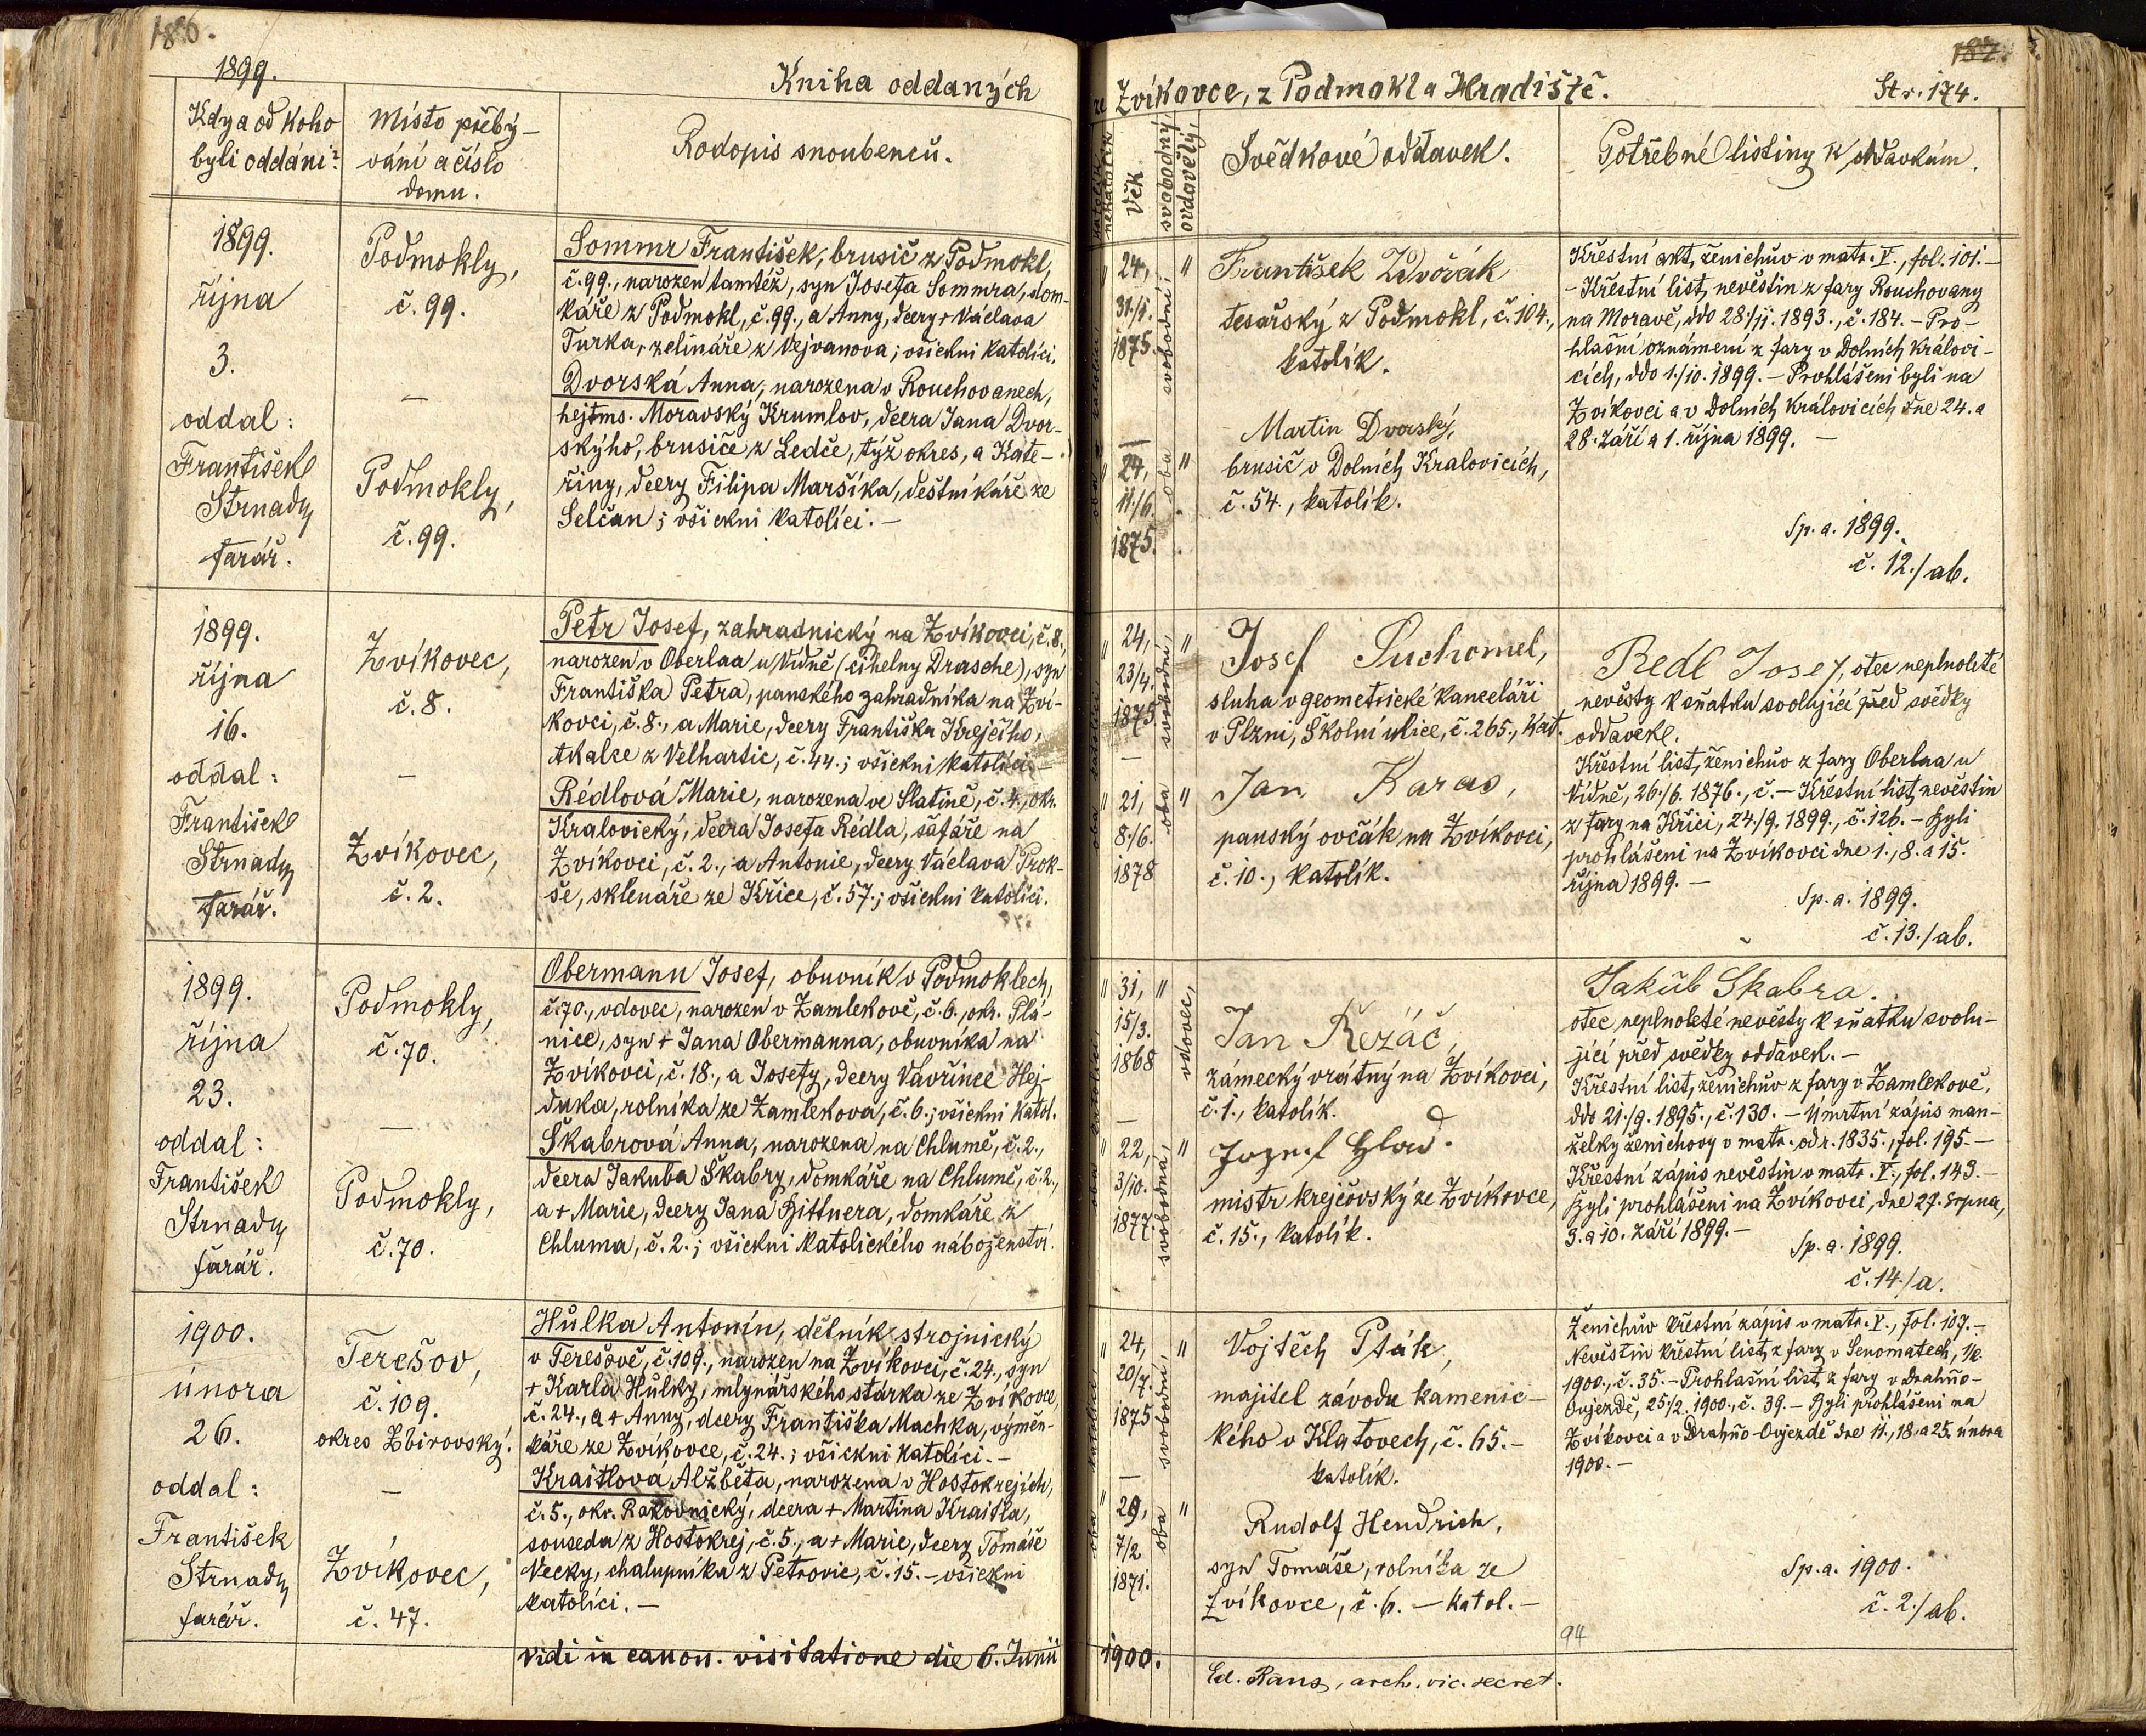 186.
1899.
Kniha oddaných
Kdy a od koho
byli oddáni?
Místo přebý-
vání a číslo
domu.
Rodopis snoubenců.
1899.
října
3.
oddal:
František
Strnady
farář.
Podmokly,
č. 99.
—
Podmokly,
č. 99.
Sommr František, brusič z Podmokl,
č. 99., narozen tamtéž, syn Josefa Sommra, dom-
káře z Podmokl, č. 99., a Anny, dcery + Václava
Turka, zelináře z Vejvanova; všickni katolíci.
Dvorská Anna, narozena v Rouchovanech,
hejtms. Moravský Krumlov, dcera Jana Dvor-
skýho, brusiče z Ledče, týž okres, a Kate-
řiny, dcery Filipa Maršíka, deštníkáře ze
Selčan; všickni katolíci. —
1899.
října
16.
oddal:
František
Strnady
farář.
Zvíkovec,
č. 8.
—
Zvíkovec,
č. 2.
Petr Josef, zahradnický na Zvíkovci, č. 8.,
narozen v Oberlaa u Vídně (cihelny Drasche), syn
Františka Petra, panského zahradníka na Zví-
kovci, č. 8., a Marie, dcery Františka Krejčího,
tkalce z Velhartic, č. 44.; všickni katolíci. —
Rédlová Marie, narozena ve Slatině, č. 4., okr.
Kralovický, dcera Josefa Rédla, šafáře na
Zvíkovci, č. 2., a Antonie, dcery Václava Prok-
še, sklenáře ze Křice, č. 57.; všickni katolíci.
1899.
října
23.
oddal:
František
Strnady
farář.
Podmokly,
č. 70.
—
Podmokly,
č. 70.
Obermann Josef, obuvník v Podmoklech,
č. 70., vdovec, narozen v Zamlekově, č. 6., okr. Plá-
nice, syn + Jana Obermanna, obuvníka na
Zvíkovci, č. 18., a Josefy, dcery Vavřince Hej-
duka, rolníka ze Zamlekova, č. 6.; všickni katol.
Škabrová Anna, narozena na Chlumě, č. 2.,
dcera Jakuba Škabry, domkáře na Chlumě, č. 2.,
a + Marie, dcery Jana Bittnera, domkáře z
Chluma, č. 2.; všickni katolického náboženství.
1900.
února
26.
oddal:
František
Strnady
farář.
Terešov,
č. 109.
okres Zbirovský.
—
Zvíkovec,
č. 47.
Hůlka Antonín, dělník strojnický
v Terešově, č. 109., narozen na Zvíkovci, č. 24., syn
+ Karla Hůlky, mlynářského stárka ze Zvíkovce,
č. 24., a + Anny, dcery Františka Machka, výmen-
káře ze Zvíkovce, č. 24.; všickni katolíci. —
Kraitlová Alžběta, narozena v Hostokrejích,
č. 5., okr. Rakovnický, dcera + Martina Kraitla,
souseda z Hostokrej, č. 5., a + Marie, dcery Tomáše
Vecky, chalupníka z Petrovic, č. 15. — všickni
katolíci. —
Vidi in canon. visitatione die 6. Junii
187.
ze Zvíkovce, z Podmokl a Hradiště.
Str. 174.
katolík
nekatolík
Věk
svobodný,
ovdovělý,
Svědkové oddavek.
Potřebné listiny k oddavkám.
24,
31./1.
1875.
—
24,
11./6.
1875.
oba svobodní,
František Dvořák
tesařský z Podmokl, č. 104.,
katolík.
Martin Dvorský,
brusič v Dolních Kralovicích,
č. 54., katolík.
Křestní akt, ženichův v matr. V., fol. 101. —
— Křestní list, nevěstin z fary Rouchovany
na Moravě, ddo 28./11. 1893., č. 184. — Pro-
hlašní oznámení z fary v Dolních Královi-
cích, ddo 1./10. 1899. — Prohlášeni byli na
Zvíkovci a v Dolních Královicích dne 24. a
28. září a 1. října 1899. —
Sp. a. 1899.
č. 12./ab.
24,
23/4.
1875.
—
21,
8./6.
1878
oba svobodní,
Josef Suchomel,
sluha v geometrické kanceláři
v Plzni, Školní ulice, č. 265., kat.
Jan Karas,
panský ovčák na Zvíkovci,
č. 10., katolík.
Redl Josef, otec neplnoleté
nevěsty k sňatku svolující před svědky
oddavek.
Křestní list, ženichův z fary Oberlaa u
Vídně, 26./6. 1876., č. — Křestní list, nevěstin
z fary na Křici, 24./9. 1899., č. 126. — Byli
prohlášeni na Zvíkovci dne 1., 8. a 15.
října 1899. —
Sp. a. 1899.
č. 13./ab.
31,
15/3.
1868
—
22,
3/10.
1877.
vdovec,
svobodna,
Jan Řezáč,
zámecký vrátný na Zvíkovci,
č. 1., katolík.
mistr krejčovský ze Zvíkovce,
č. 15., katolík.
Jakub Skabra.
otec neplnoleté nevěsty k sňatku svolu-
jící před svědky oddavek. —
Křestní list, ženichův z fary v Zamlekově,
ddo 21./9. 1895., č. 130. — Úmrtní zápis man-
želky ženichovy v matr. od r. 1835., fol. 195. —
Křestní zápis nevěstin v matr. V., fol. 149. —
Byli prohlášeni na Zvíkovci, dne 27. srpna,
3. a 10. září 1899. —
Sp. a. 1899.
č. 14./a.
24,
20/7.
1875
—
29,
7/2
1871.
oba svobodní,
Vojtěch Pták,
majitel závodu kamenic-
kého v Klatovech, č. 65. —
katolík.
Rudolf Hendrich,
syn Tomáše, rolníka ze
Zvíkovce, č. 6. — katol. —
Ženichův křestní zápis v matr. V., fol. 107. —
Nevěstin křestní list, z fary v Senomatech,
1900., č. 35. — Prohlašní list, z fary v Drahňo-
Oujezdě, 25./2. 1900., č. 39. — Byli prohlášeni na
Zvíkovci a v Drahňo-Oujezdě dne 11., 18. a 25. února
1900. —
Sp. a. 1900.
č. 2./ab.
94
1900.
Ed. Rans, arch. vic. secret.